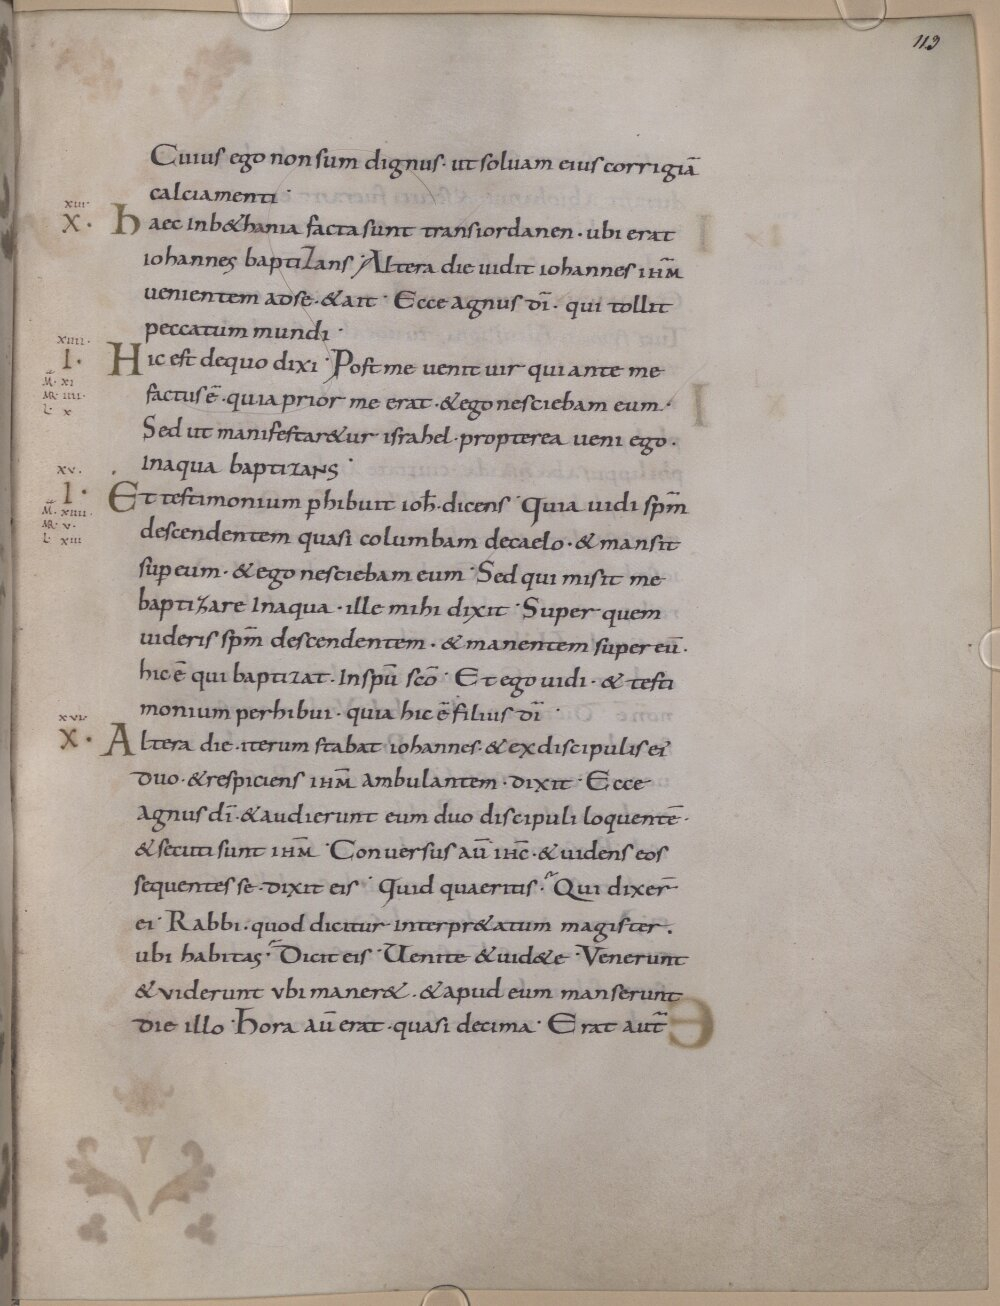 113
Cuius ego non sum dignus· ut soluam eius corrigiā
calciamenti·
xiii·
X· Haec In b&hania facta sunt transiordanen· ubi erat
iohannes baptiZans· Altera die uidit iohannes ihm̄
uenientem adse· & ait· Ecce agnus dī· qui tollit
peccatum mundi·
xiiii·
I· Hic est dequo dixi· Post me uenit uir qui ante me
M̄· xi
MR· iiii·
L̄ x
factus ē· quia prior me erat· & ego nesciebam eum·
Sed ut manifestar&ur israhel· propterea ueni ego·
Inaqua baptizans·
xv·
I· Et testimonium p̄hibuit ioh̄· dicens· Quia uidi spm̄
M̄· xiiii·
MR· v·
L̄ xiii
descendentem quasi columbam decaelo· & mansit
sup eum· & ego nesciebam eum· Sed qui misit me
baptizare Inaqua· ille mihi dixit· Super quem
uideris spm̄ descendentem· & manentem super eū·
hic ē qui baptizat· Inspū scō· Et ego uidi· & testi
monium perhibui· quia hic ē filius dī·
xvi·
X· Altera die· iterum stabat iohannes· & ex discipulis ei'
duo· & respiciens ihm̄ ambulantem· dixit· Ecce
agnus dī· & audierunt eum duo discipuli loquentē·
& secuti sunt ihm̄· Conuersus aū ihc̄· & uidens eos
sequentes se· dixit eis· Quid quaeritis· Qui dixer̄
ei· Rabbi· quod dicitur interpr&atum magister·
ubi habitas· Dicit eis· Uenite & uid&e· Venerunt
& viderunt vbi maner&· & apud eum manserunt
die illo· Hora aū erat· quasi decima· Erat aut̄